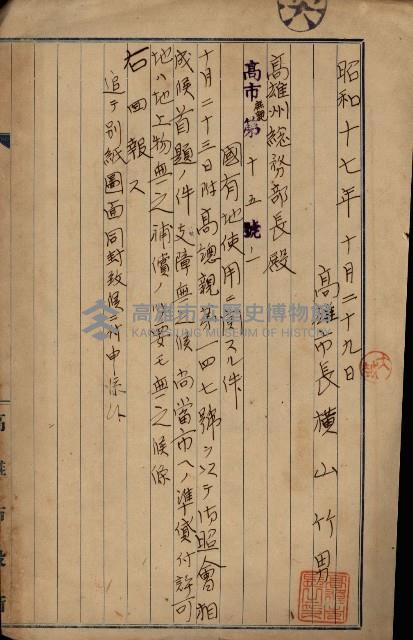 昭和十七年十月二十九日
高雄市長 橫山竹男
高雄州總務部長殿
高市 第十五號ノ一
國有地使用ニ關スル件
十月二十三日附高總親第一四七號ヲ以テ御照會相
成候首題ノ件支障無之候 尚當市ヘノ準貸付許可
地ハ地上物無之補償ノ必要モ無之候條
右回報ス
追テ別紙圖面同封致候ニ付申添フ
高雄市役所
高雄市立歷史博物館
KAOHSIUNG MUSEUM OF HISTORY